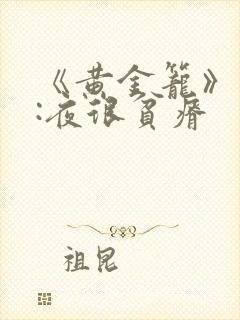 《黄金籠》
:夜很貧瘠
祖昆